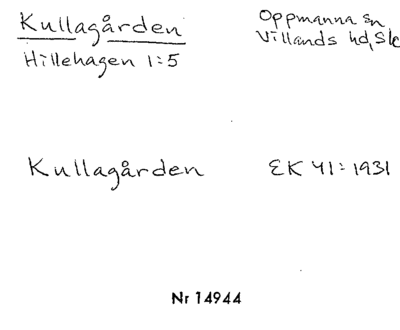 Kullagården
Oppmanna sn
Villands hd, Sk
Hillehagen 1:5
Kullagården
EK 41:1931
Nr 14944